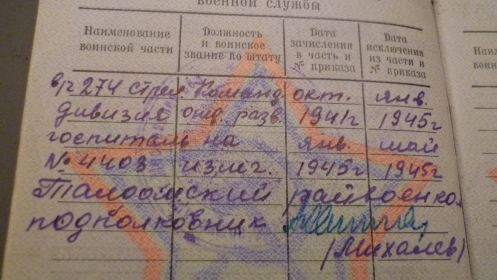 военной службы
Наименование воинской части
Должность и воинское звание по штату
Дата зачисления в часть и № приказа
Дата исключения из части и № приказа
в/ч 274 стрел. Команд. окт. янв.
дивизия отд. разв. 1941г 1945г
госпиталь на янв. май
№ 4403 излеч. 1945г 1945г
райвоенко.
подполковник
(Михалев)